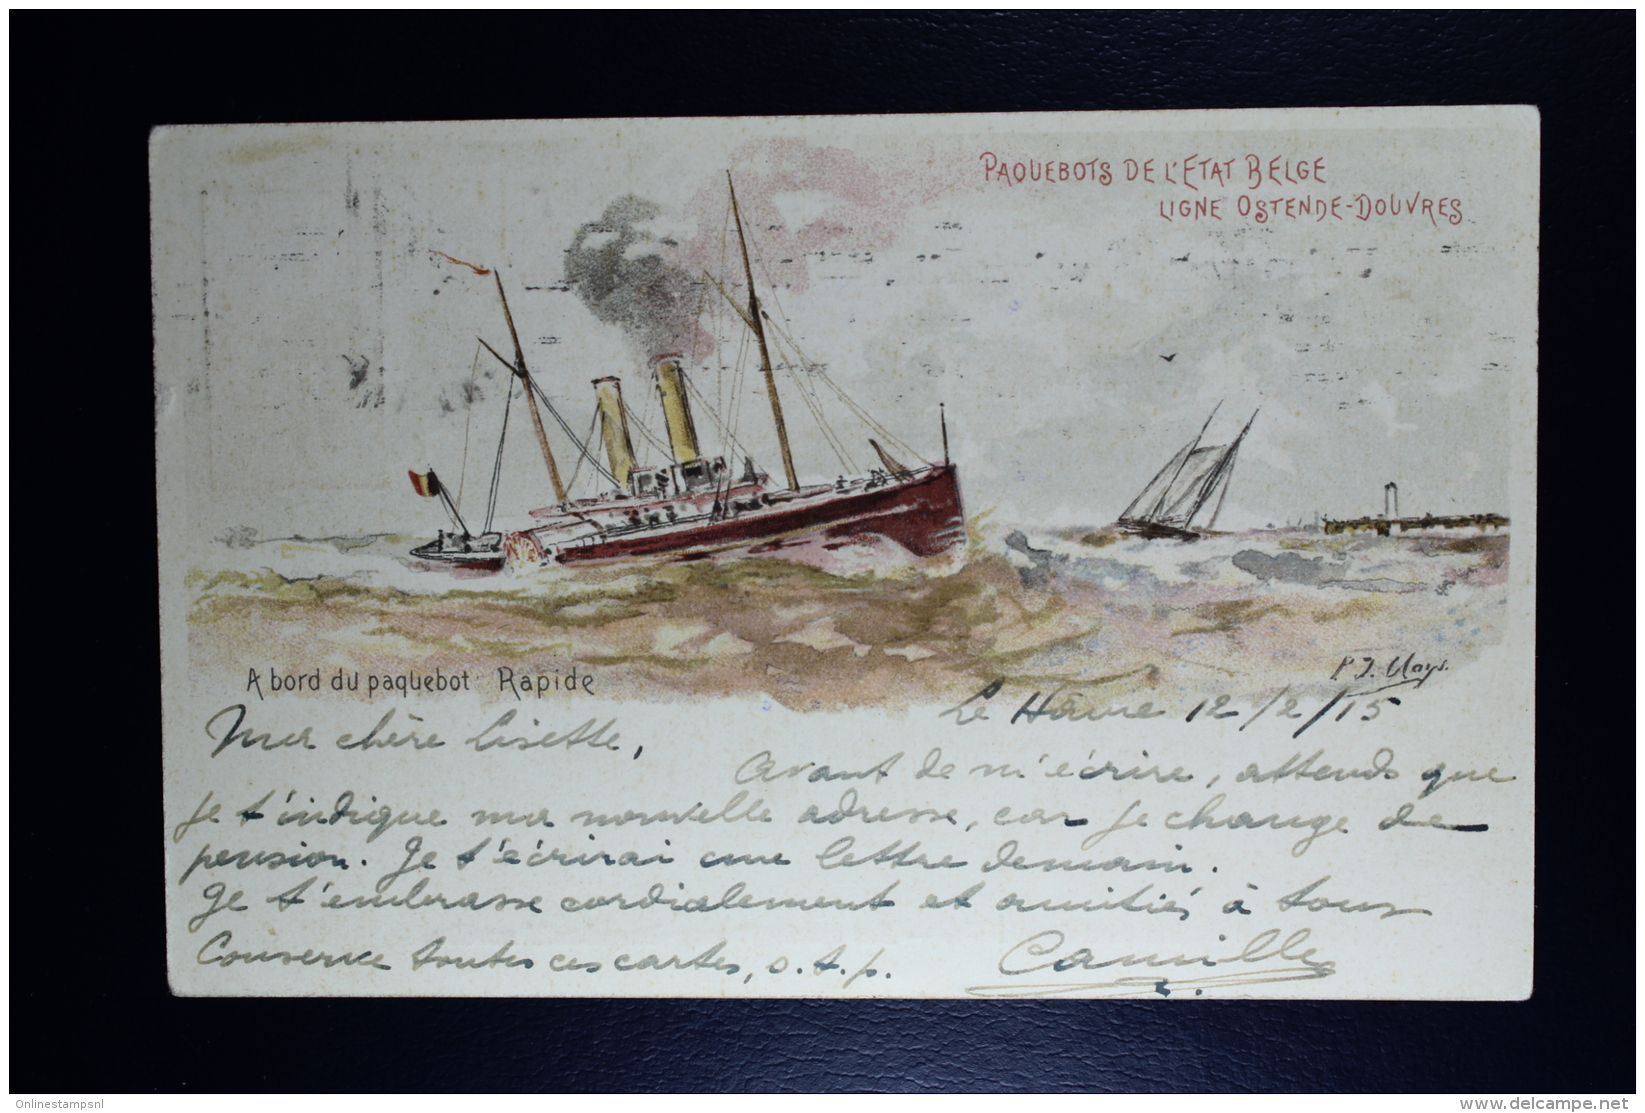 PAQUEBOTS DE L'ETAT BELGE
LIGNE OSTENDE-DOUVRES
A bord du paquebot Rapide
P. J. Clays.
Le Havre 12/2/15
Ma chère Lisette,
Avant de m'écrire, attends que
je t'indique ma nouvelle adresse, car je change de
pension. Je t'écrirai une lettre demain.
Je t'embrasse cordialement et amitiés à tous
Conserve toutes ces cartes, s.t.p.
Camille
Onlinestampsnl
www.delcampe.net